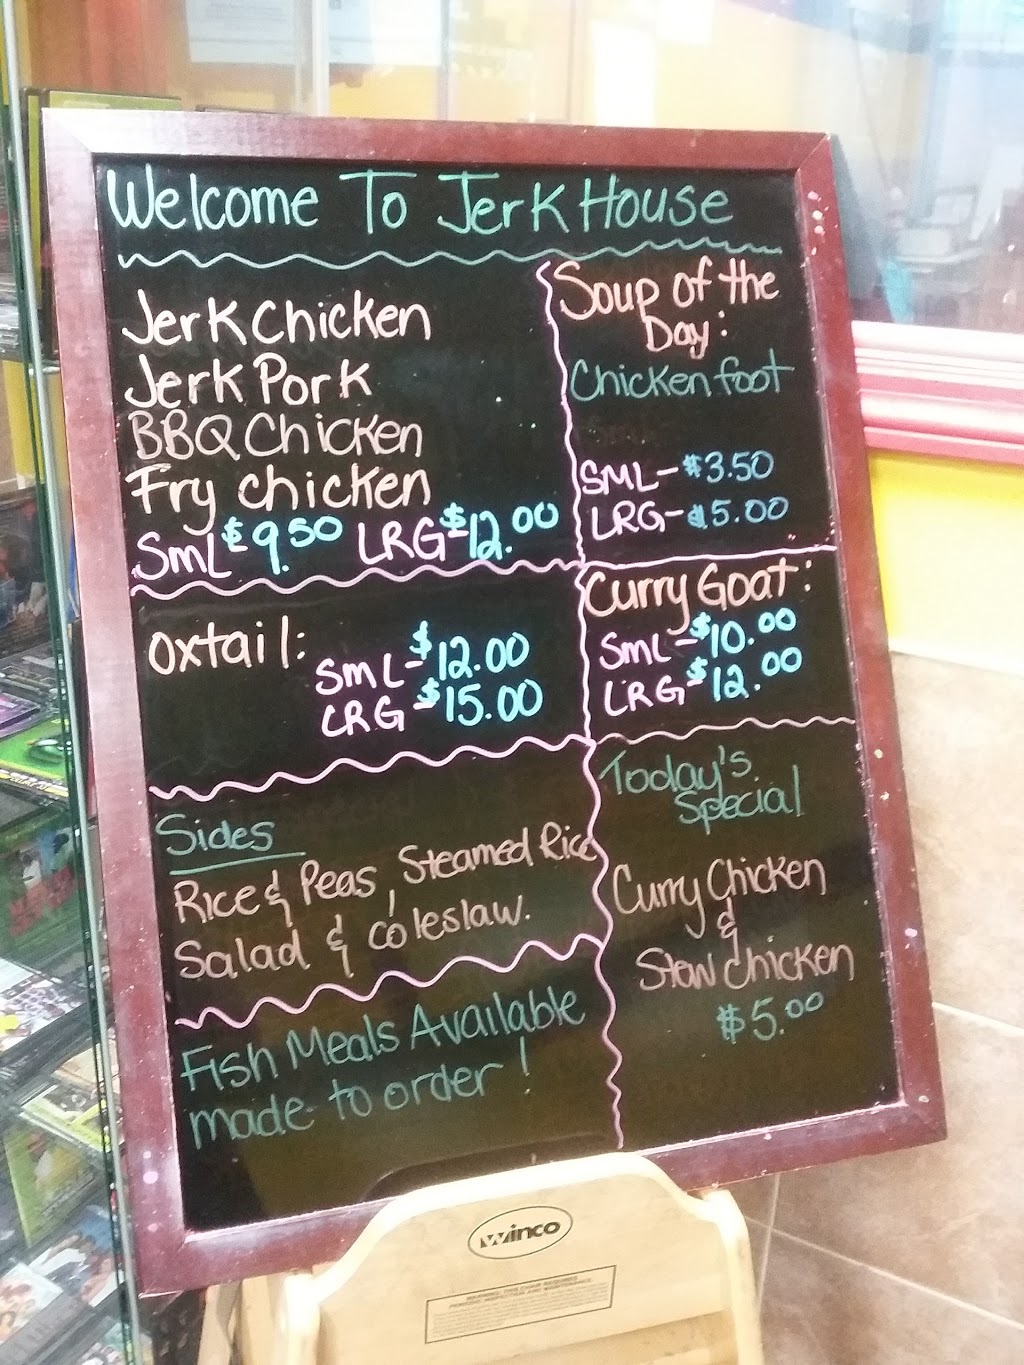 Welcome To Jerk House
Jerk Chicken
Jerk Pork
BBQ Chicken
Fry chicken
SmL-$9.50 LRG-$12.00
Soup Of the
Day:
Chicken foot
SML-$3.50
LRG-$5.00
Oxtail:
SmL-$12.00
LRG-$15.00
Curry Goat:
SmL-$10.00
LRG-$12.00
Sides
Rice & Peas, Steamed Rice
Salad & coleslaw.
Today's
Special
Curry Chicken
&
Stew Chicken
$5.00
Fish Meals Available
made-to order!
winco
WARNING: THIS CHAIR REQUIRES
PERIODIC INSPECTION AND MAINTENANCE.